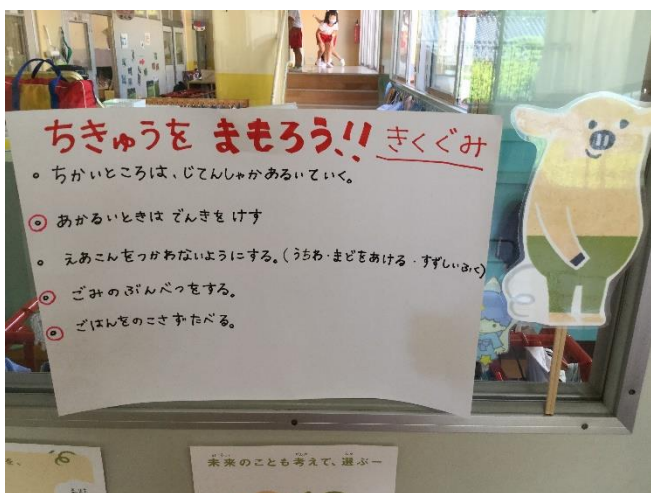 ちきゅうを まもろう!! きくぐみ
• ちかいところは、じてんしゃかあるいていく。
• あかるいときは でんきを けす
• えあこんをつかわないようにする。(うちわ・まどをあける・すずしいふく)
• ごみのぶんべつをする。
• ごはんをのこさずたべる。
を、
未来のことも考えて、選ぶー